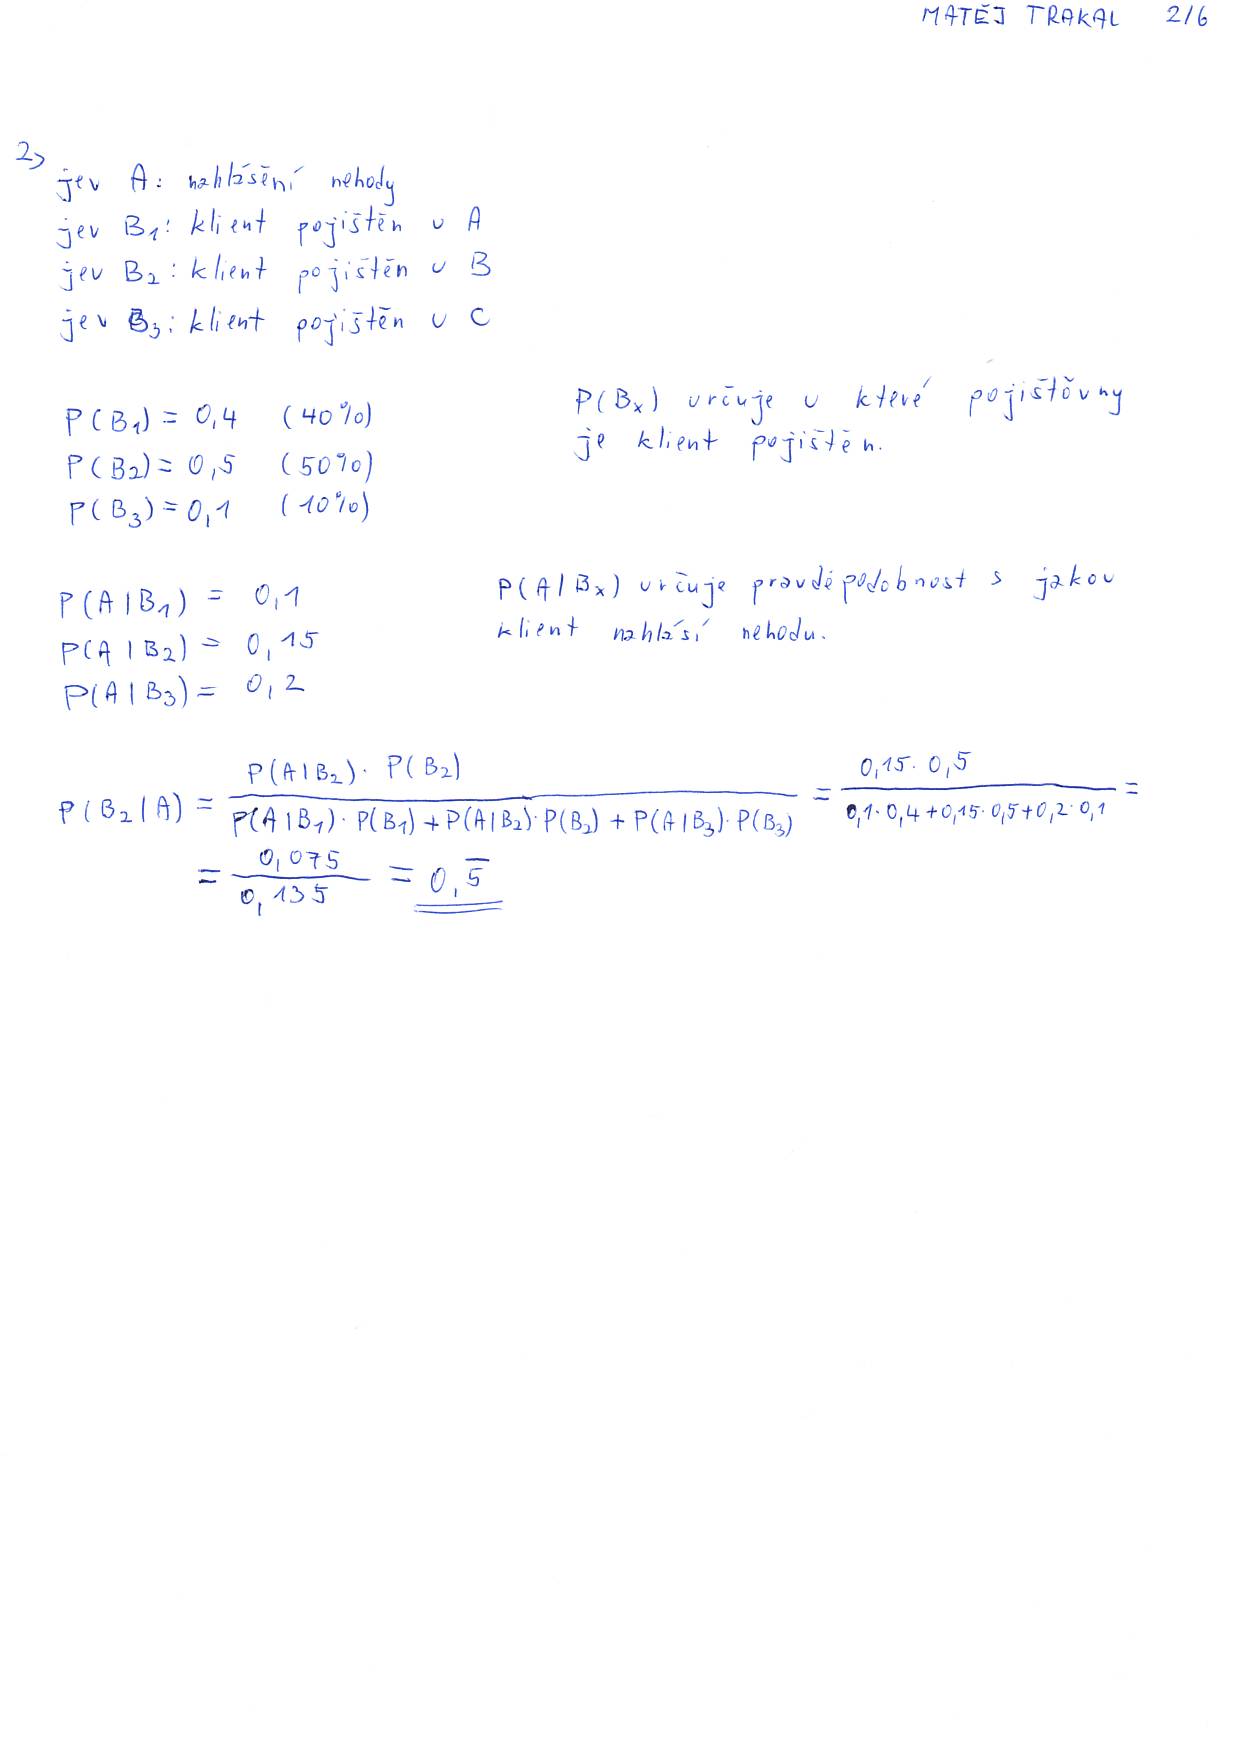 MATĚJ TRAKAL 2/6
2)
jev A: nahlášení nehody
jev B₁: klient pojištěn u A
jev B₂: klient pojištěn u B
jev B₃: klient pojištěn u C
P(B₁) = 0,4 (40%)
P(B₂) = 0,5 (50%)
P(B₃) = 0,1 (10%)
P(Bₓ) určuje u které pojištovny
je klient pojištěn.
P(A|B₁) = 0,1
P(A|B₂) = 0,15
P(A|B₃) = 0,2
P(A|Bₓ) určuje pravděpodobnost s jakou
klient nahlásí nehodu.
P(B₂|A) = (P(A|B₂) · P(B₂)) / (P(A|B₁) · P(B₁) + P(A|B₂) · P(B₂) + P(A|B₃) · P(B₃)) = (0,15 · 0,5) / (0,1 · 0,4 + 0,15 · 0,5 + 0,2 · 0,1) =
= 0,075 / 0,135 = 0,5̅